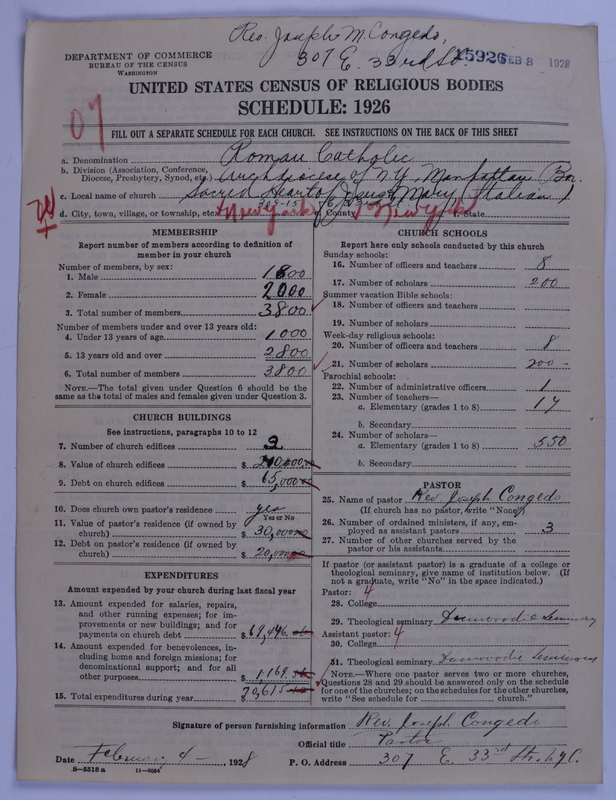 Rev. Joseph M. Congedo,
307 E. 33rd St.
15926 FEB 8 1928
DEPARTMENT OF COMMERCE
BUREAU OF THE CENSUS
WASHINGTON
UNITED STATES CENSUS OF RELIGIOUS BODIES
SCHEDULE: 1926
07
FILL OUT A SEPARATE SCHEDULE FOR EACH CHURCH. SEE INSTRUCTIONS ON THE BACK OF THIS SHEET
a. Denomination Roman Catholic
b. Division (Association, Conference,
Diocese, Presbytery, Synod, etc.) Archdiocese of N.Y. Manhattan Bor.
c. Local name of church Sacred Heart of Jesus & Mary (Italian)
d. City, town, village, or township, etc. New York County New York State
MEMBERSHIP
Report number of members according to definition of
member in your church
Number of members, by sex:
1. Male 1800
2. Female 2000
3. Total number of members 3800
Number of members under and over 13 years old:
4. Under 13 years of age 1000
5. 13 years old and over 2800
6. Total number of members 3800
NOTE.—The total given under Question 6 should be the
same as the total of males and females given under Question 3.
CHURCH BUILDINGS
See instructions, paragraphs 10 to 12
7. Number of church edifices 2
8. Value of church edifices $ 200,000.00
9. Debt on church edifices $ 65,000.00
10. Does church own pastor's residence? yes
Yes or No
11. Value of pastor's residence (if owned by
church) $ 30,000.00
12. Debt on pastor's residence (if owned by
church) $ 20,000.00
EXPENDITURES
Amount expended by your church during last fiscal year
13. Amount expended for salaries, repairs,
and other running expenses; for im-
provements or new buildings; and for
payments on church debt $ 69,446.
14. Amount expended for benevolences, in-
cluding home and foreign missions; for
denominational support; and for all
other purposes 1,169.
15. Total expenditures during year $ 70,615
CHURCH SCHOOLS
Report here only schools conducted by this church
Sunday schools:
16. Number of officers and teachers 8
17. Number of scholars 200
Summer vacation Bible schools:
18. Number of officers and teachers
19. Number of scholars
Week-day religious schools:
20. Number of officers and teachers 8
21. Number of scholars 200
Parochial schools:
22. Number of administrative officers 1
23. Number of teachers—
a. Elementary (grades 1 to 8) 14
b. Secondary
24. Number of scholars—
a. Elementary (grades 1 to 8) 550
b. Secondary
PASTOR
25. Name of pastor Rev. Joseph Congedo
(If church has no pastor, write "None")
26. Number of ordained ministers, if any, em-
ployed as assistant pastors 3
27. Number of other churches served by the
pastor or his assistants
If pastor (or assistant pastor) is a graduate of a college or
theological seminary, give name of institution below. (If
not a graduate, write "No" in the space indicated.)
Pastor: 4
28. College
29. Theological seminary Dunwoodie Seminary
Assistant pastor: 4
30. College
31. Theological seminary Dunwoodie Seminary
NOTE.—Where one pastor serves two or more churches,
Questions 28 and 29 should be answered only on the schedule
for one of the churches; on the schedules for the other churches,
write "See schedule for church."
Signature of person furnishing information Rev. Joseph Congedo
Official title Pastor
Date February 4 -, 1928 P. O. Address 307 E. 33rd St. N.Y.C.
8—5518 a 11—9064